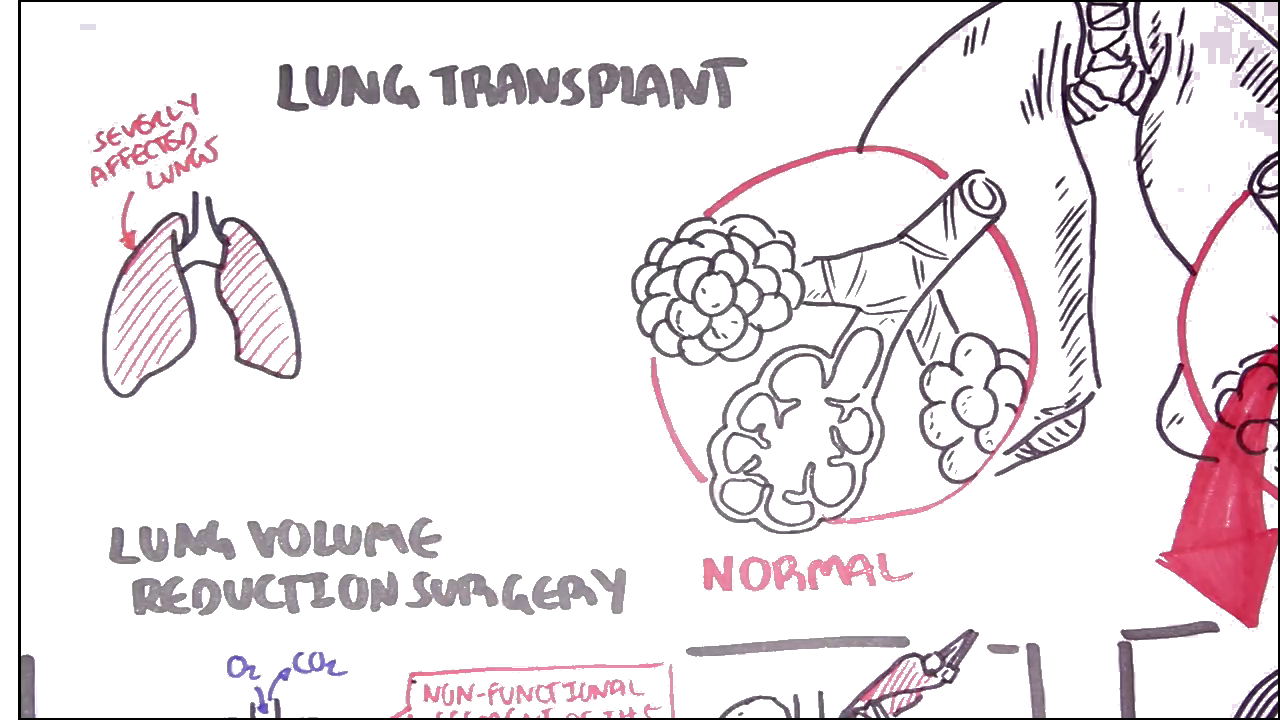 LUNG TRANSPLANT
SEVERLY
AFFECTED
LUNGS
LUNG VOLUME
REDUCTION SURGERY
NORMAL
O₂ CO₂
NON-FUNCTIONAL